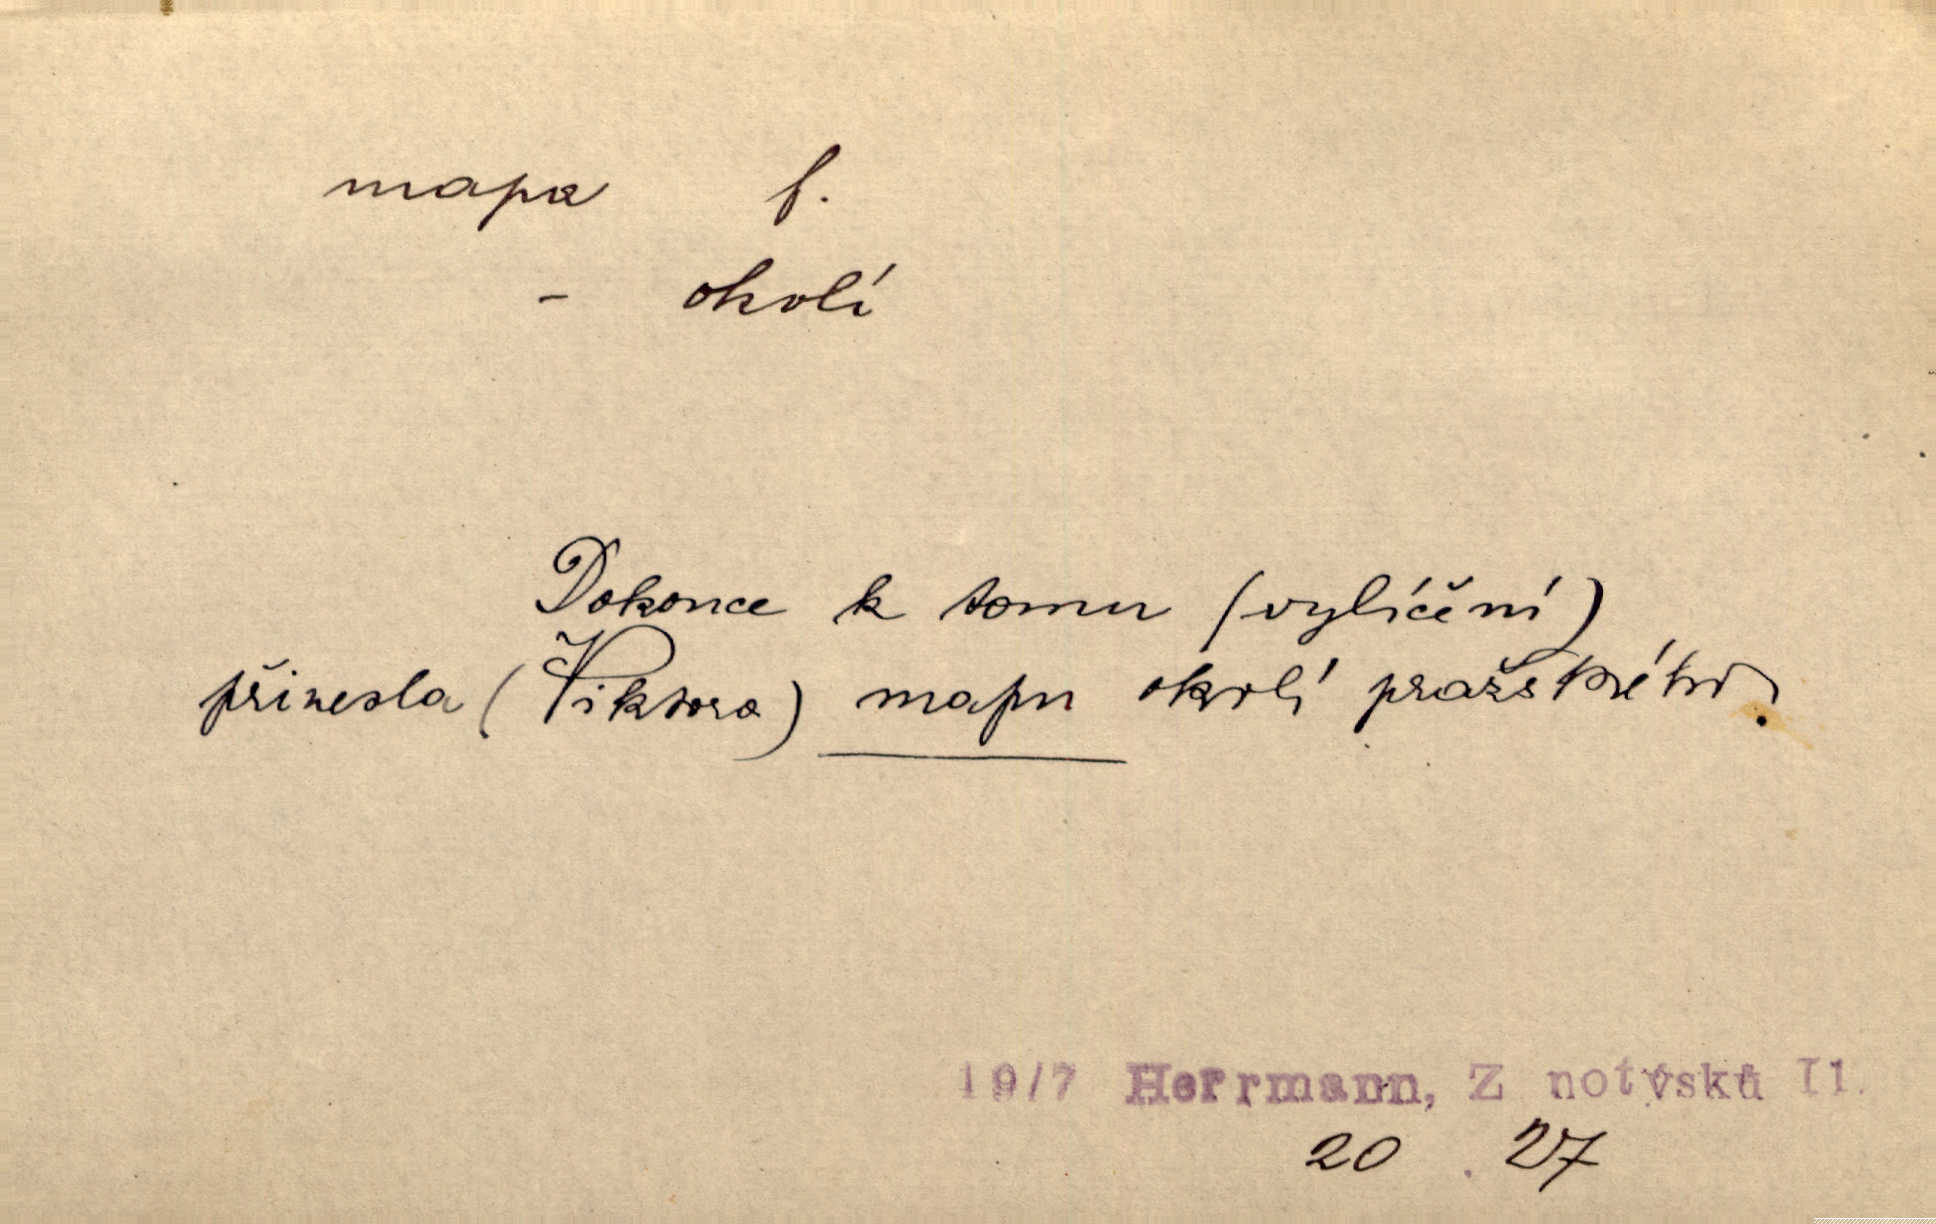 mapa f.
- okolí
Dokonce k tomu (vylíčení)
přinesla (Viktora) mapu okolí pražského.
19/7 Herrmann, Z notýsku II.
20 27